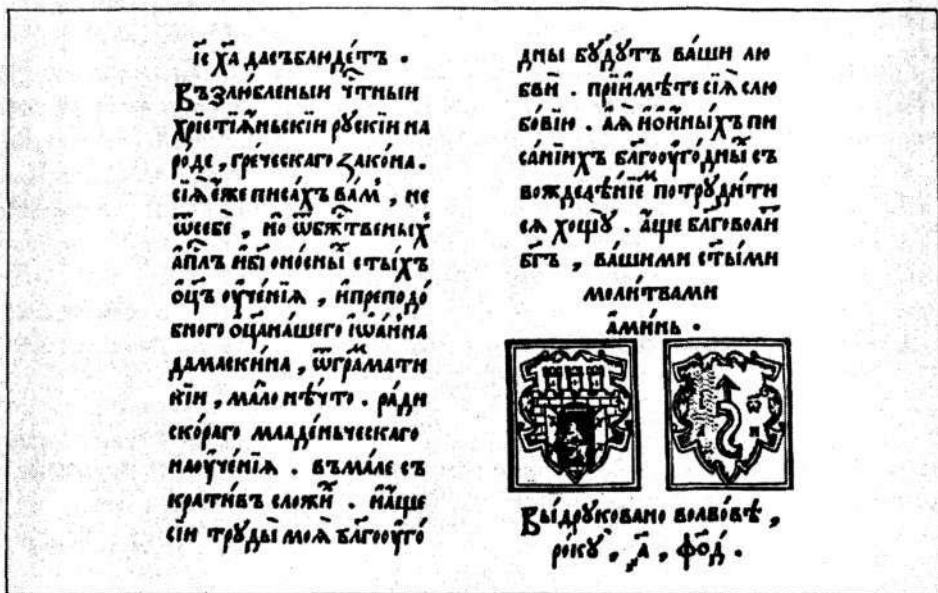 і҃с х҃а дасъблюде́тъ .
Възлю́бленыи ч҃тныи
хрїстїѧ́ньскїи ру́скїи на
ро́де , гре́ческаго зако́на .
сїѧ̀ е́же писа́хъ ва́мъ , не
ѿсебѐ , но ѿбж҃твеных
а҃пⷭ҇лъ и҆бг҃оно́сныⷯ ст҃ы́хъ
ѻ҆ц҃ъ оу҆че́нїѧ , и҆преподо́
бного ѻ҆ц҃ана́шего і҆ѡа́нна
дамаски́на , ѿгра́мати
кїи , ма́ло нѣ́что . ра́ди
ско́раго младе́ньческаго
наоуче́нїѧ . въма́ле съ
крати́въ сложи́хъ . и҆а́ще
сїи труды̀ моѧ̀ бл҃гооуго́
дны бу́дутъ ва́ши лю
бвѝ . прїими́те сїѧ̀ слю
бо́вїю . а҆ѧ҆̀ и҆ои҆́ныхъ пи
са́нїихъ бл҃гооуго́дныⷯ съ
вожделѣ́нїемъ потруди́ти
сѧ хощу̀ . а́ще бл҃говоли́тъ
бг҃ъ , ва́шими ст҃ы́ми
моли́твами
а҆ми́нь .
ѡ
н
Вы́друковано волво́вѣ ,
ро́ку , ҂а҃ , фо҃д .